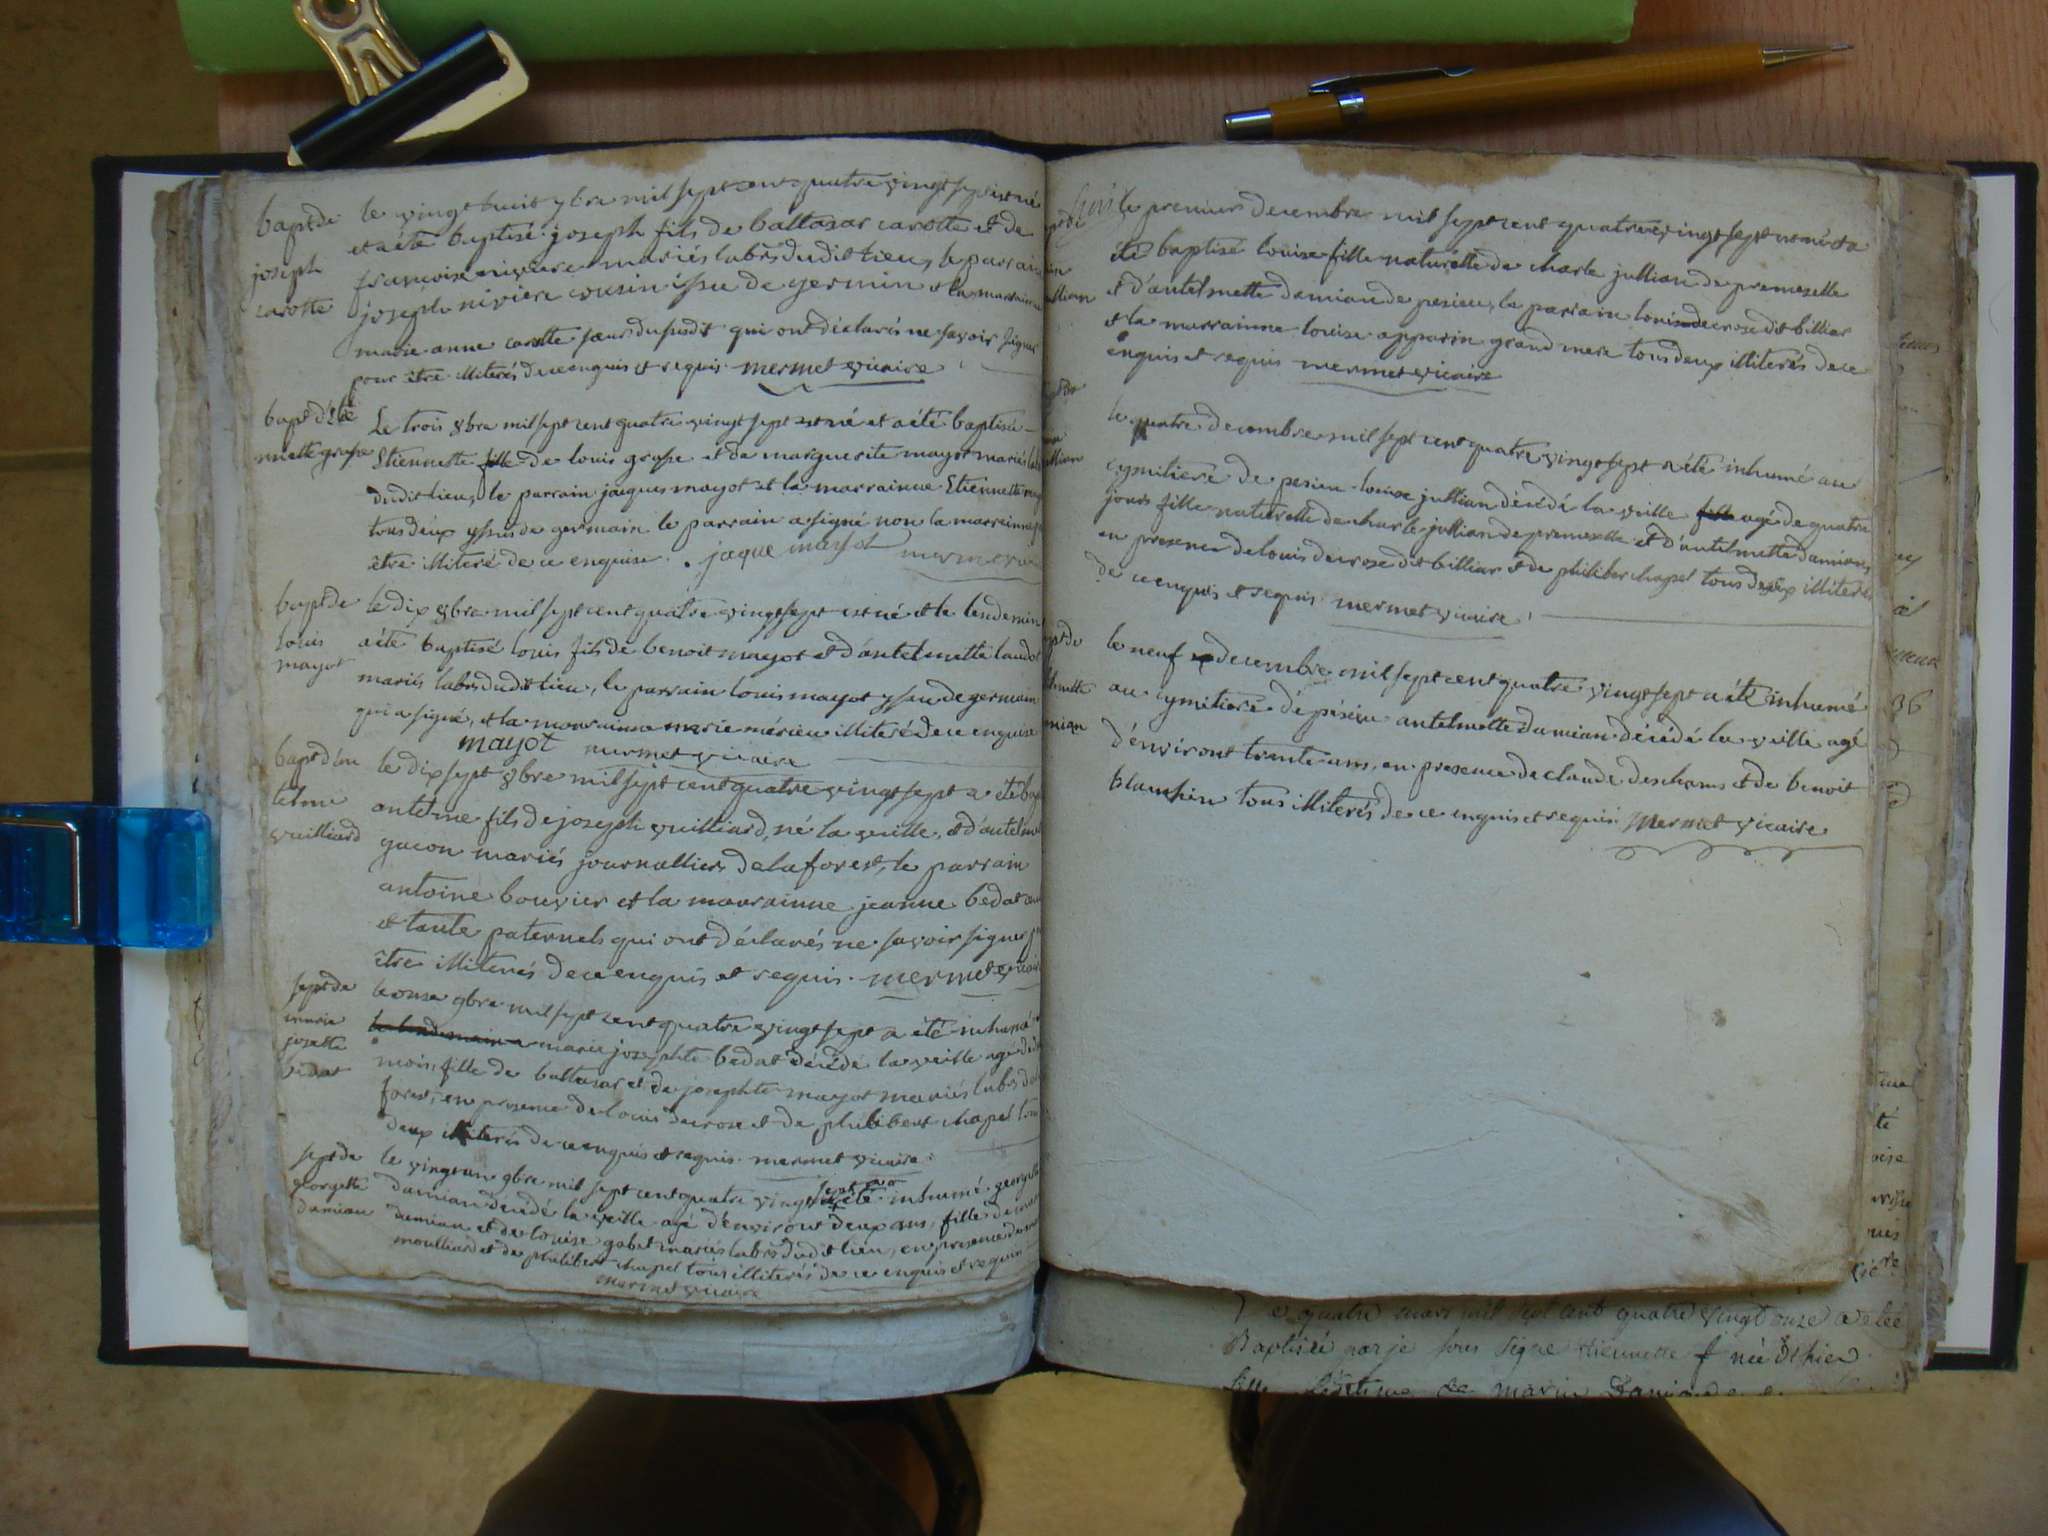 bapt de
joseph
carotte
le vingt huit 7bre mil sept cent quatre vingt sept est né
et a été baptisé joseph fils de baltasar carotte et de
francoise niviere mariés labrs dudit lieu, le parrain
joseph niviere cousin issu de germin et la marrainne
marie anne carotte sœur du susdit qui ont déclarés ne savoir signer
pour être illiterés de ce enquis et requis mermet vicaire
bapt d'étie
nnette grosse
Le trois 8bre mil sept cent quatre vingt sept est né et a été baptisée
Etiennette fille de louis grosse et de marguerite mayot mariés labrs
dudit lieu, le parrain jacques mayot et la marrainne Etiennette
tous deux yssus de germain le parrain a signé non la marrainne
être illiteré de ce enquise. jaque mayot mermet
bapt de
louis
mayot
le dix 8bre mil sept cent quatre vingt sept est né et le lendemin
a été baptisé louis fils de benoit mayot et d'antelmette laudet
mariés labrs dudit lieu, le parrain louis mayot yssu de germain
qui a signé, et la marrainne marie mérieu illiteré de ce enquise
mayot mermet vicaire
bapt d'an
telme
vuilliard
le dix sept 8bre mil sept cent quatre vingt sept a été
antelme fils de joseph vuilliard, né la veille, et d'antelme
gucon mariés journalliers de la forest, le parrain
antoine bouvier et la marrainne jeanne bedat
et tante paternels qui ont déclarés ne savoir signer
être illiterés de ce enquis et requis. mermet vicaire
sept de
marie
josette
bedat
le onse 9bre mil sept cent quatre vingt sept a été inhumé
le lendemain a marie josephte bedat décédé la veille agé de
mois, fille de baltasar et de josephte mayot mariés labrs de la
forest, en presence de louis decrose et de philibert chapel tous
deux illiterés de ce enquis et requis. mermet vicaire.
sept de
georgette
damian
le vingt un 9bre mil sept cent quatre vingt sept a été inhumé georgette
damian décédé la veille agé d'environt deux ans, fille de
damian et de louise gobet mariés labrs dudit lieu, en presence de
moulliard et de philibert chapel tous illiterés de ce enquis et requis
mermet vicaire
le premier decembre mil sept cent quatre vingt sept est né et a
été baptisé louise fille naturelle de charle jullian de premeselle
et d'antelmette damian de pesieu, le parrain louis decrose dit billiar
et la marrainne louise apparin grand mere tous deux illiterés de ce
enquis et requis mermet vicaire
le quatre decembre mil sept cent quatre vingt sept a été inhumé au
cymitiere de pesieu louise jullian décédé la veille fille agé de quatre
jours fille naturelle de charle jullian de premeselle et d'antelmette damian
en presence de louis decrose dit billiar et de philiber chapel tous deux illiterés
de ce enquis et requis. mermet vicaire
le neuf decembre mil sept cent quatre vingt sept a été inhumé
au cymitiere de pésieu antelmette damian décédé la veille agé
d'environt trente ans, en presence de claude deschams et de benoit
blanchin tous illiterés de ce enquis et requis. Mermet vicaire
Le quatre mars mil sept cent quatre vingt onze a eté
Baptisée par je sous signe etiennette née d'hier
fille légitime de marin Damian